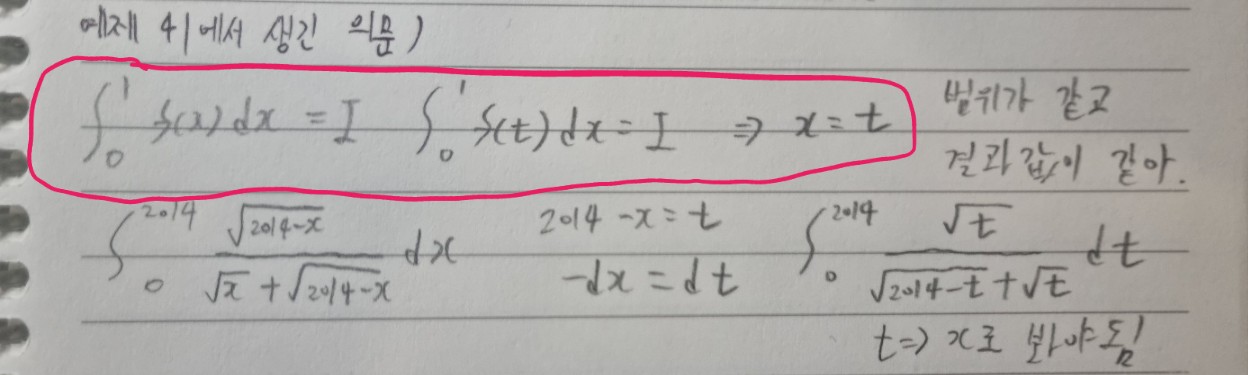 예제 41에서 생긴 의문)
∫₀¹ f(x)dx = I ∫₀¹ f(t)dx = I ⇒ x = t 범위가 같고
결과값이 같아.
∫₀²⁰¹⁴ √(2014-x) / (√x + √(2014-x)) dx 2014 - x = t ∫₀²⁰¹⁴ √t / (√(2014-t) + √t) dt
-dx = dt
t ⇒ x로 봐야됨!